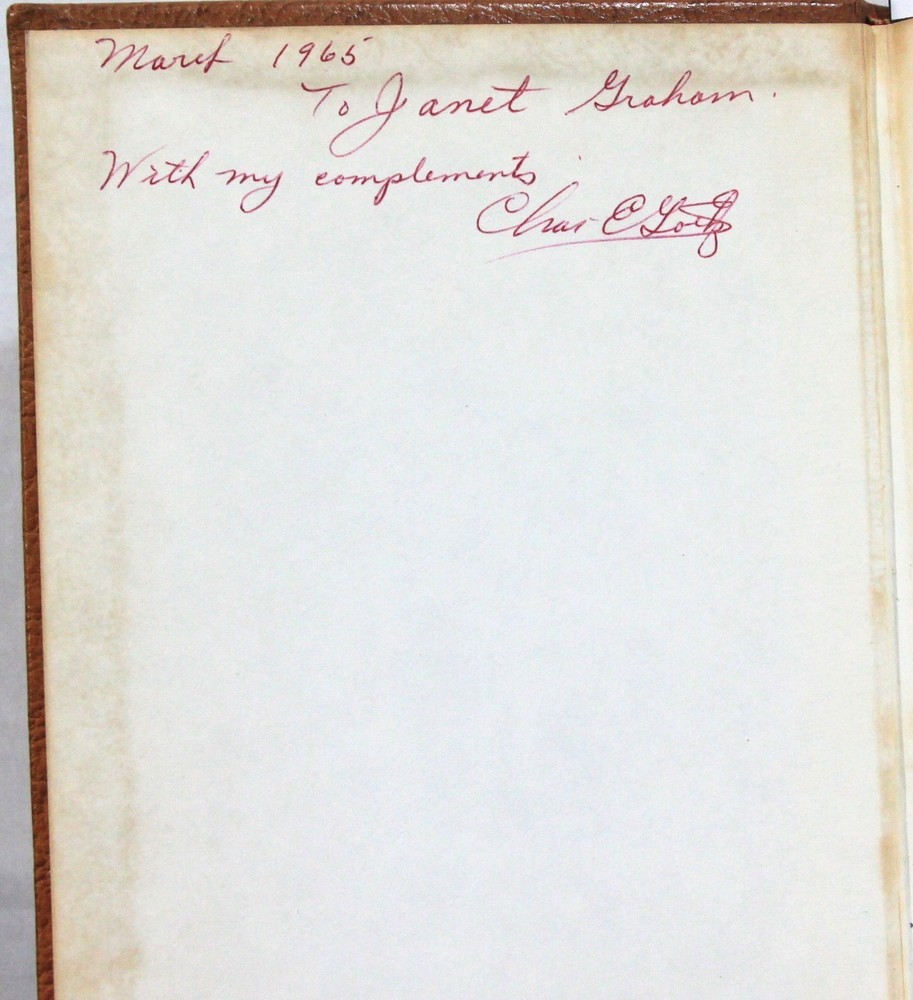 March 1965
To Janet Graham.
With my complements
Chas E Goetz